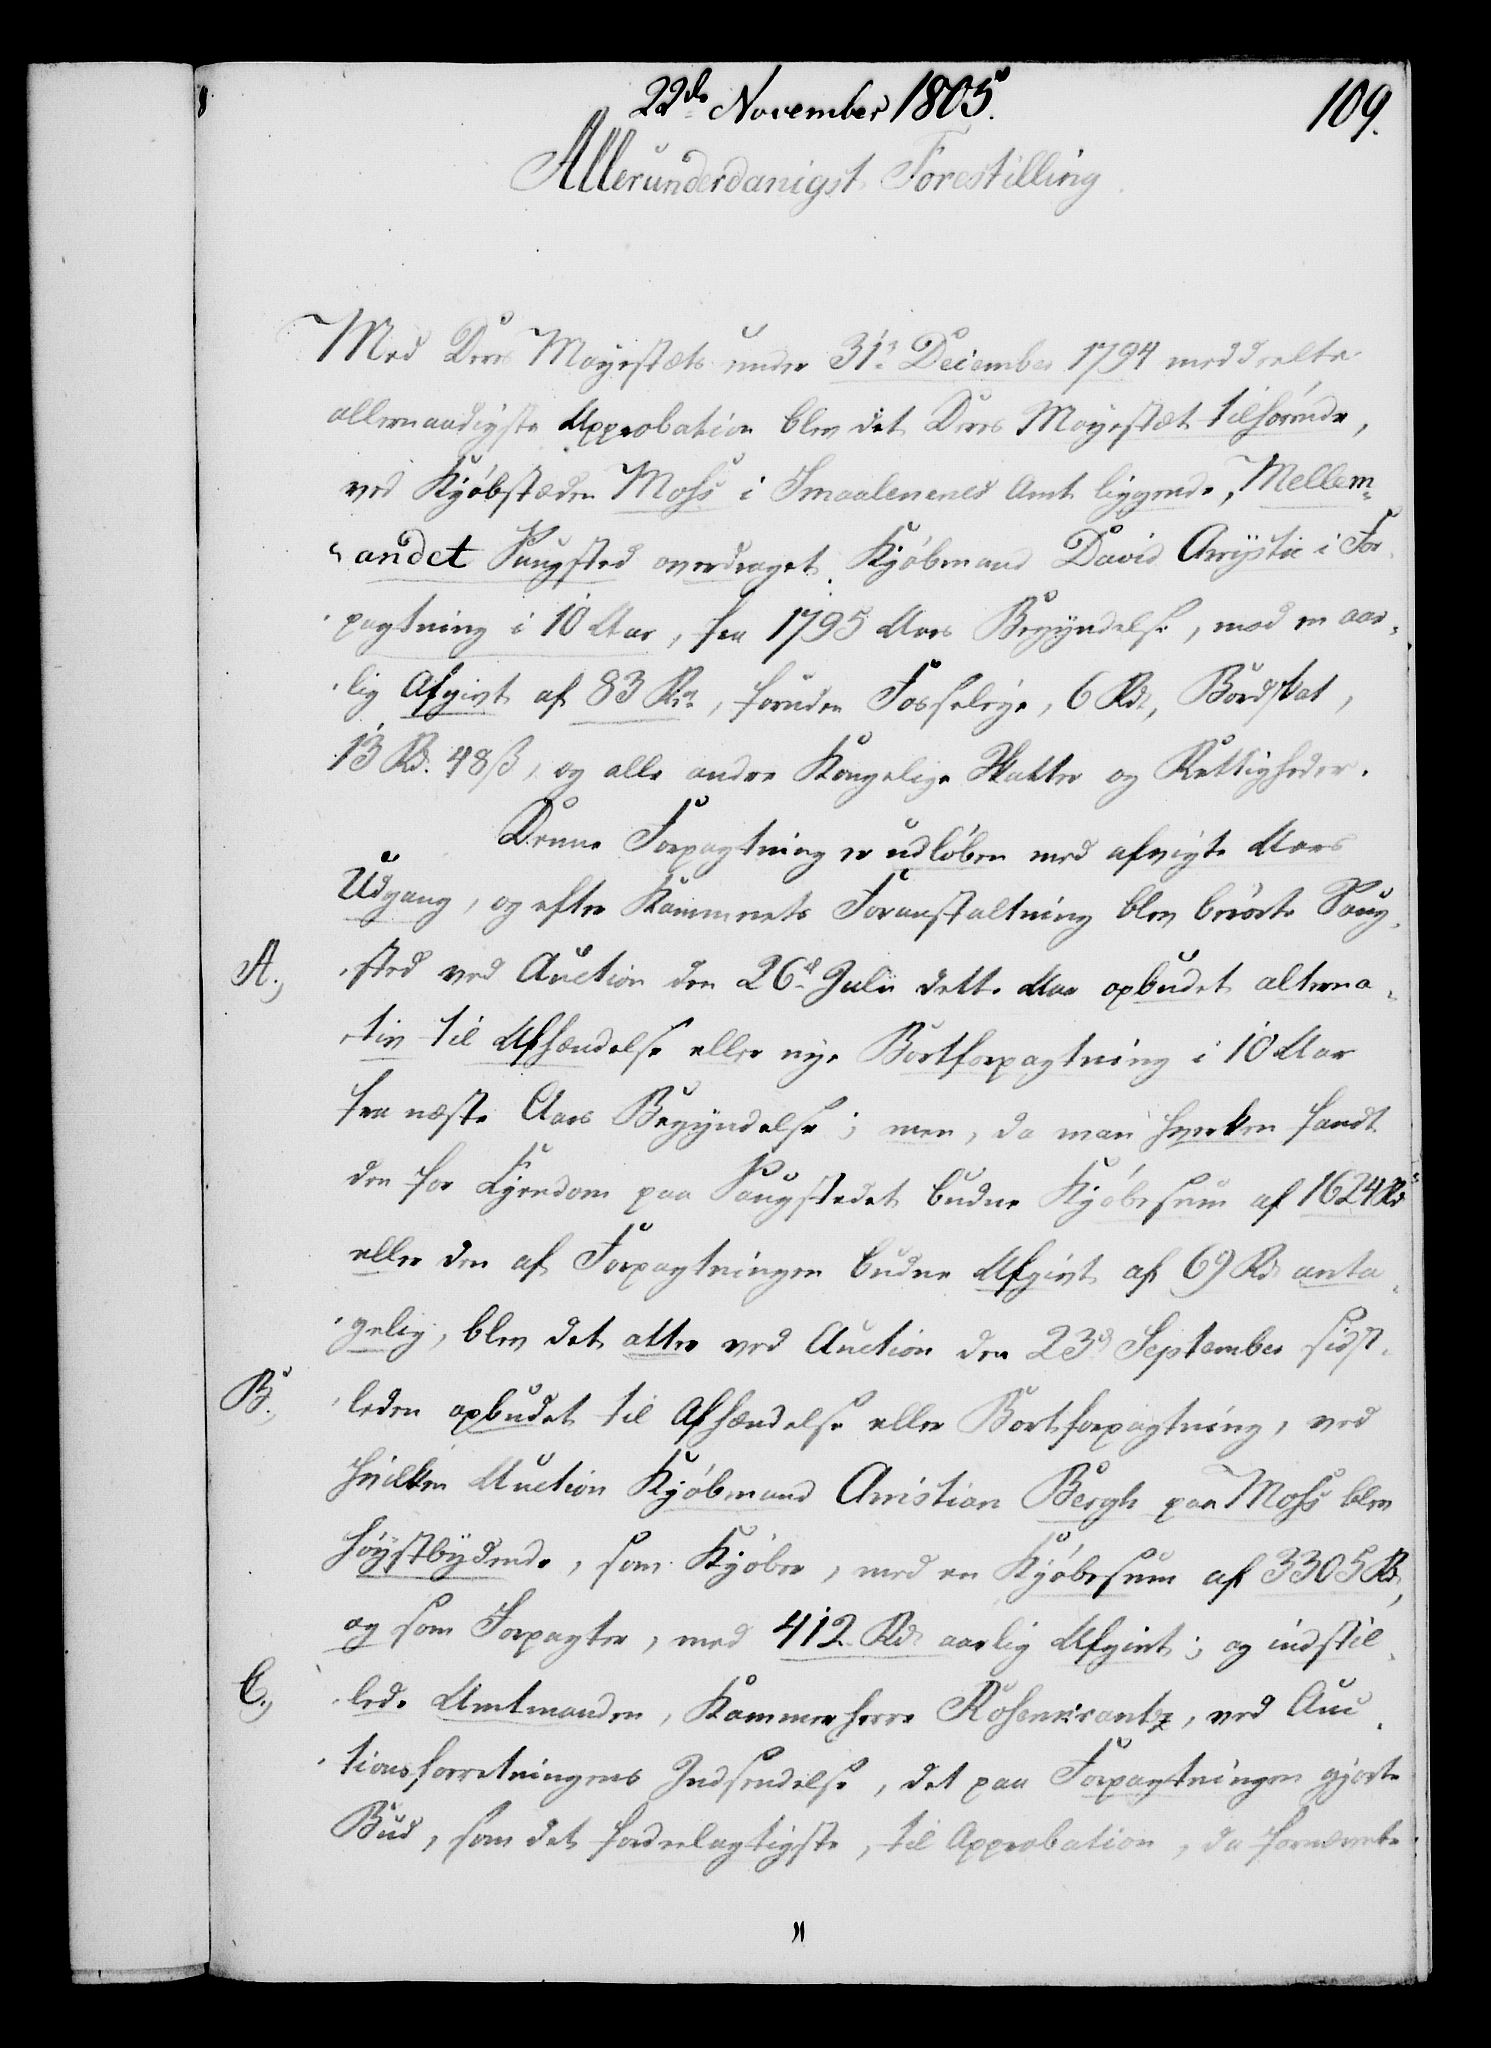 22de November 1805.
109.
Allerunderdanigst Forestilling
Med Deres Mayestæts under 31te December 1794 meddeelte
allernaadigste Approbation blev det Deres Mayestæt tilhørende,
ved Kjøbstæden Moss i Smaalenenes Amt liggende, Mellem-
andet Saugsted overdraget Kjøbmand David Chrystie i For-
pagtning i 10 Aar, fra 1795 Aars Begyndelse, mod en aar-
lig Afgivt af 83 Rd, foruden Fosseleye, 6 Rd, Bordskat,
13 Rd. 48 ß, og alle andre Kongelige Skatter og Rettigheder.
Denne Forpagtning er udløben med afvigte Aars
Udgang, og efter Kammerets Foranstaltning blev berørte Saug-
A.) sted ved Auction den 26de Julii dette Aar opbudet alterna-
tiv til Afhændelse eller nye Bortforpagtning i 10 Aar
fra næste Aars Begyndelse; men, da man hverken fandt
den for Ejendom paa Saugstedet budne Kjøbesum af 1624 Rd
eller den af Forpagtningen budne Afgivt af 69 Rd anta-
gelig, blev det atter ved Auction den 23de September sidst-
B.) leden opbudet til Afhændelse eller Bortforpagtning, ved
hvilken Auction Kjøbmand Christian Bergh paa Moss blev
høystbydende, som Kjøber, med en Kjøbesum af 3305 Rd,
og som Forpagter, med 412 Rd aarlig Afgivt; og indstil-
C.) lede Amtmanden, Kammerherre Rosenkrantz, ved Auc-
tionsforretningens Indsendelse, det paa Forpagtningen gjorte
Bud, som det fordeelagtigste, til Approbation, da fornævnte